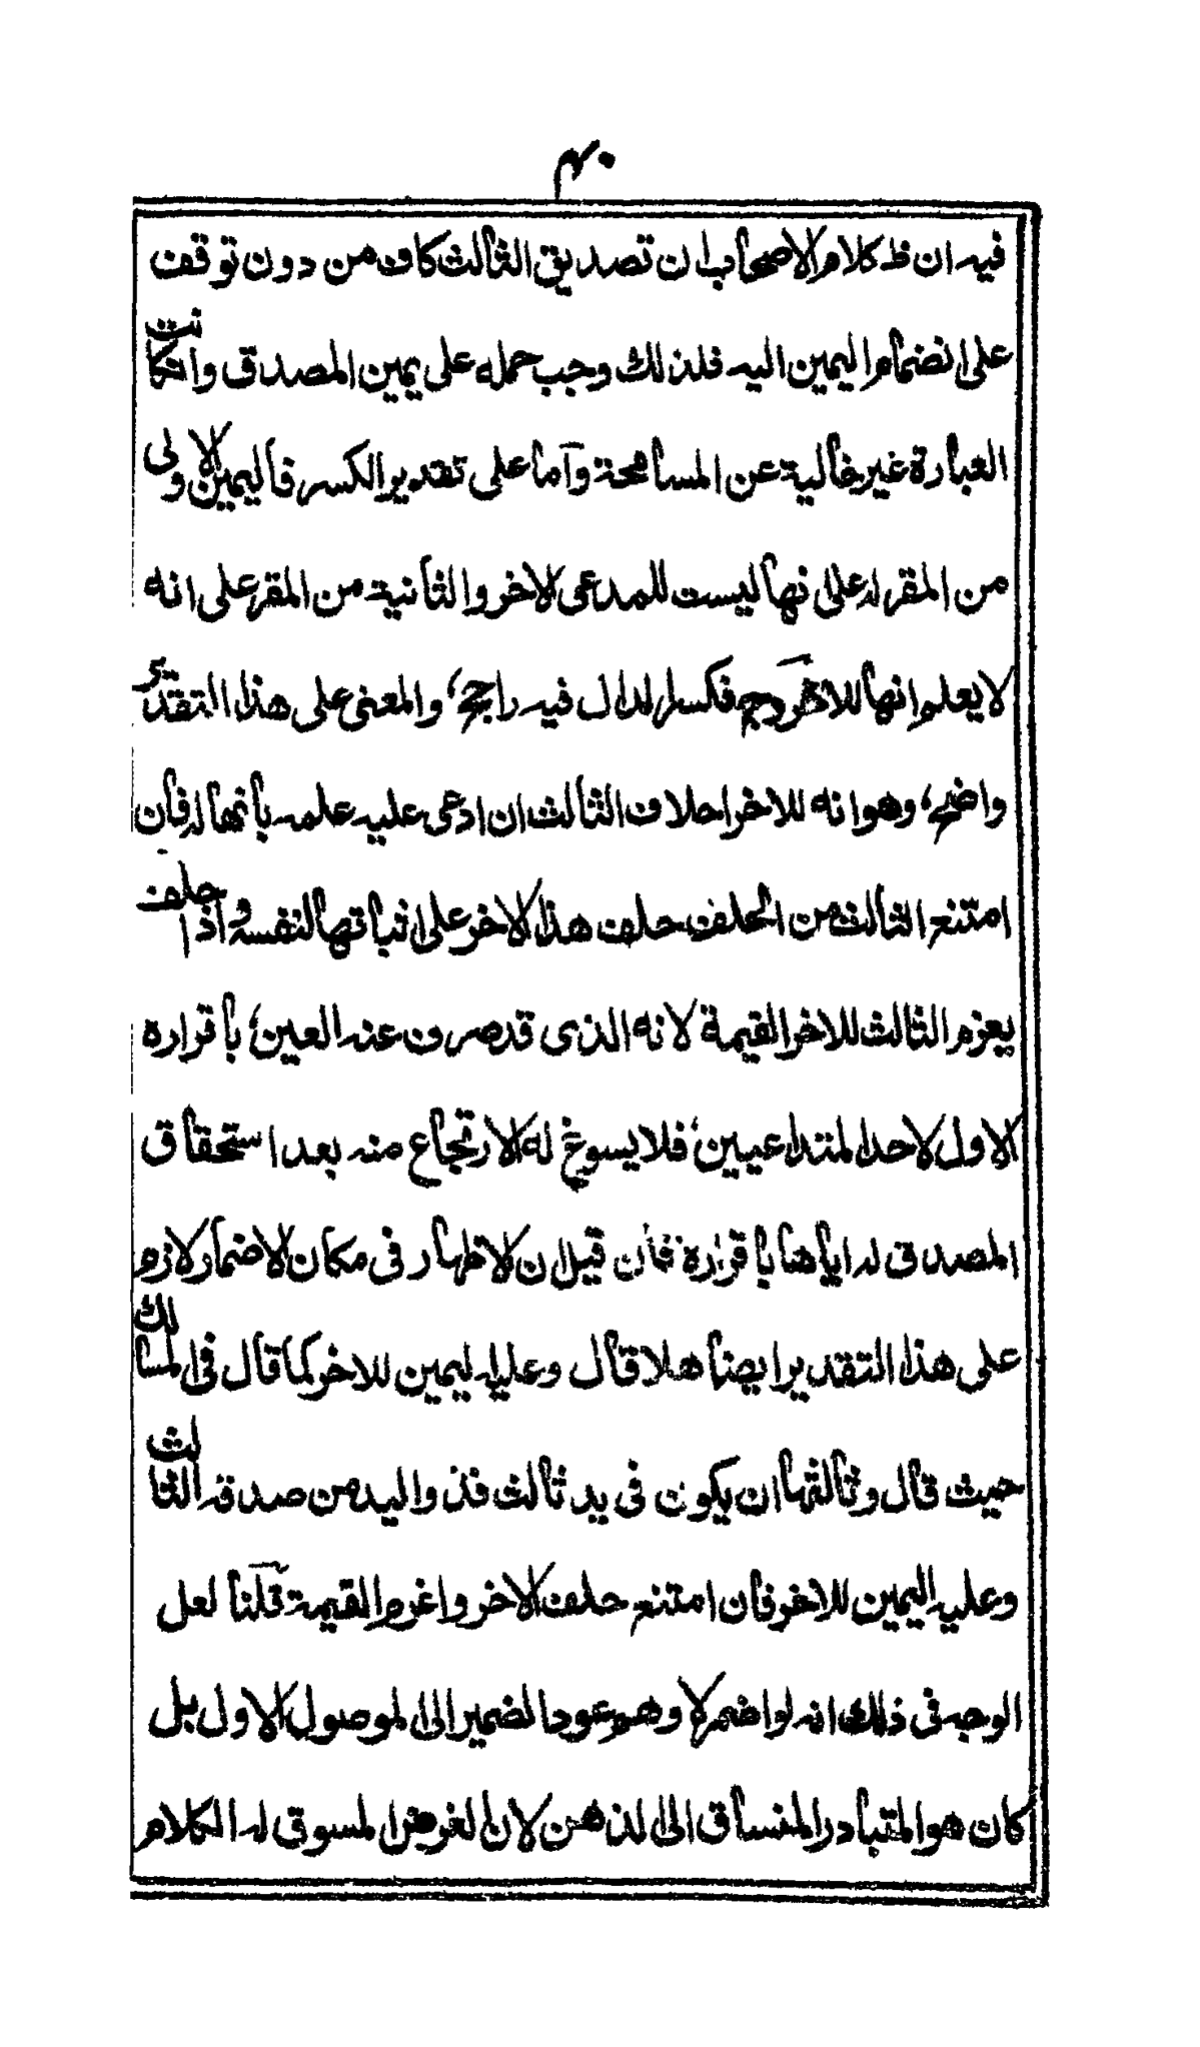 ۴۰
فيه ان ظ كلام الاصحاب ان تصديق الثالث كاف من دون توقف
على انضمام اليمين اليه فلذلك وجب حمله على يمين المصدق وانكانت
العبارة غير خالية عن المسامحة وآما على تقدير الكسر فاليمين الاولى
من المقر له على انها ليست للمدعى الاخر والثانية من المقر على انه
لا يعلم انها للاخر وح فكسر الدال فيه راجح، والمعنى على هذا التقدير
واضح، وهو انه للاخر احلاف الثالث ان ادعى عليه علمه بانها له فان
امتنع الثالث من الحلف حلف هذا الاخر على اثباتها لنفسه واذا حلف
يغرم الثالث للاخر القيمة لانه الذى قد صرف عنه العين، باقراره
الاول لاحد المتداعيين، فلا يسوغ له الارتجاع منه بعد استحقاق
المصدق له اياها باقراره فان قيل ان الاظهار فى مكان الاضمار لازم
على هذا التقدير ايضا هلا قال وعليه ليمين للاخر كما قال فى المسالك
حيث قال وثالثها ان يكون فى يد ثالث فذو اليد من صدقه الثالث
وعليه اليمين للاخر فان امتنع حلف الاخر واغرم القيمة قلنا لعل
الوجه فى ذلك انه لو اضمر لا وهم عود الضمير الى الموصول الاول بل
كان هو المتبادر المنساق الى الذهن لان الغرض المسوق له الكلام